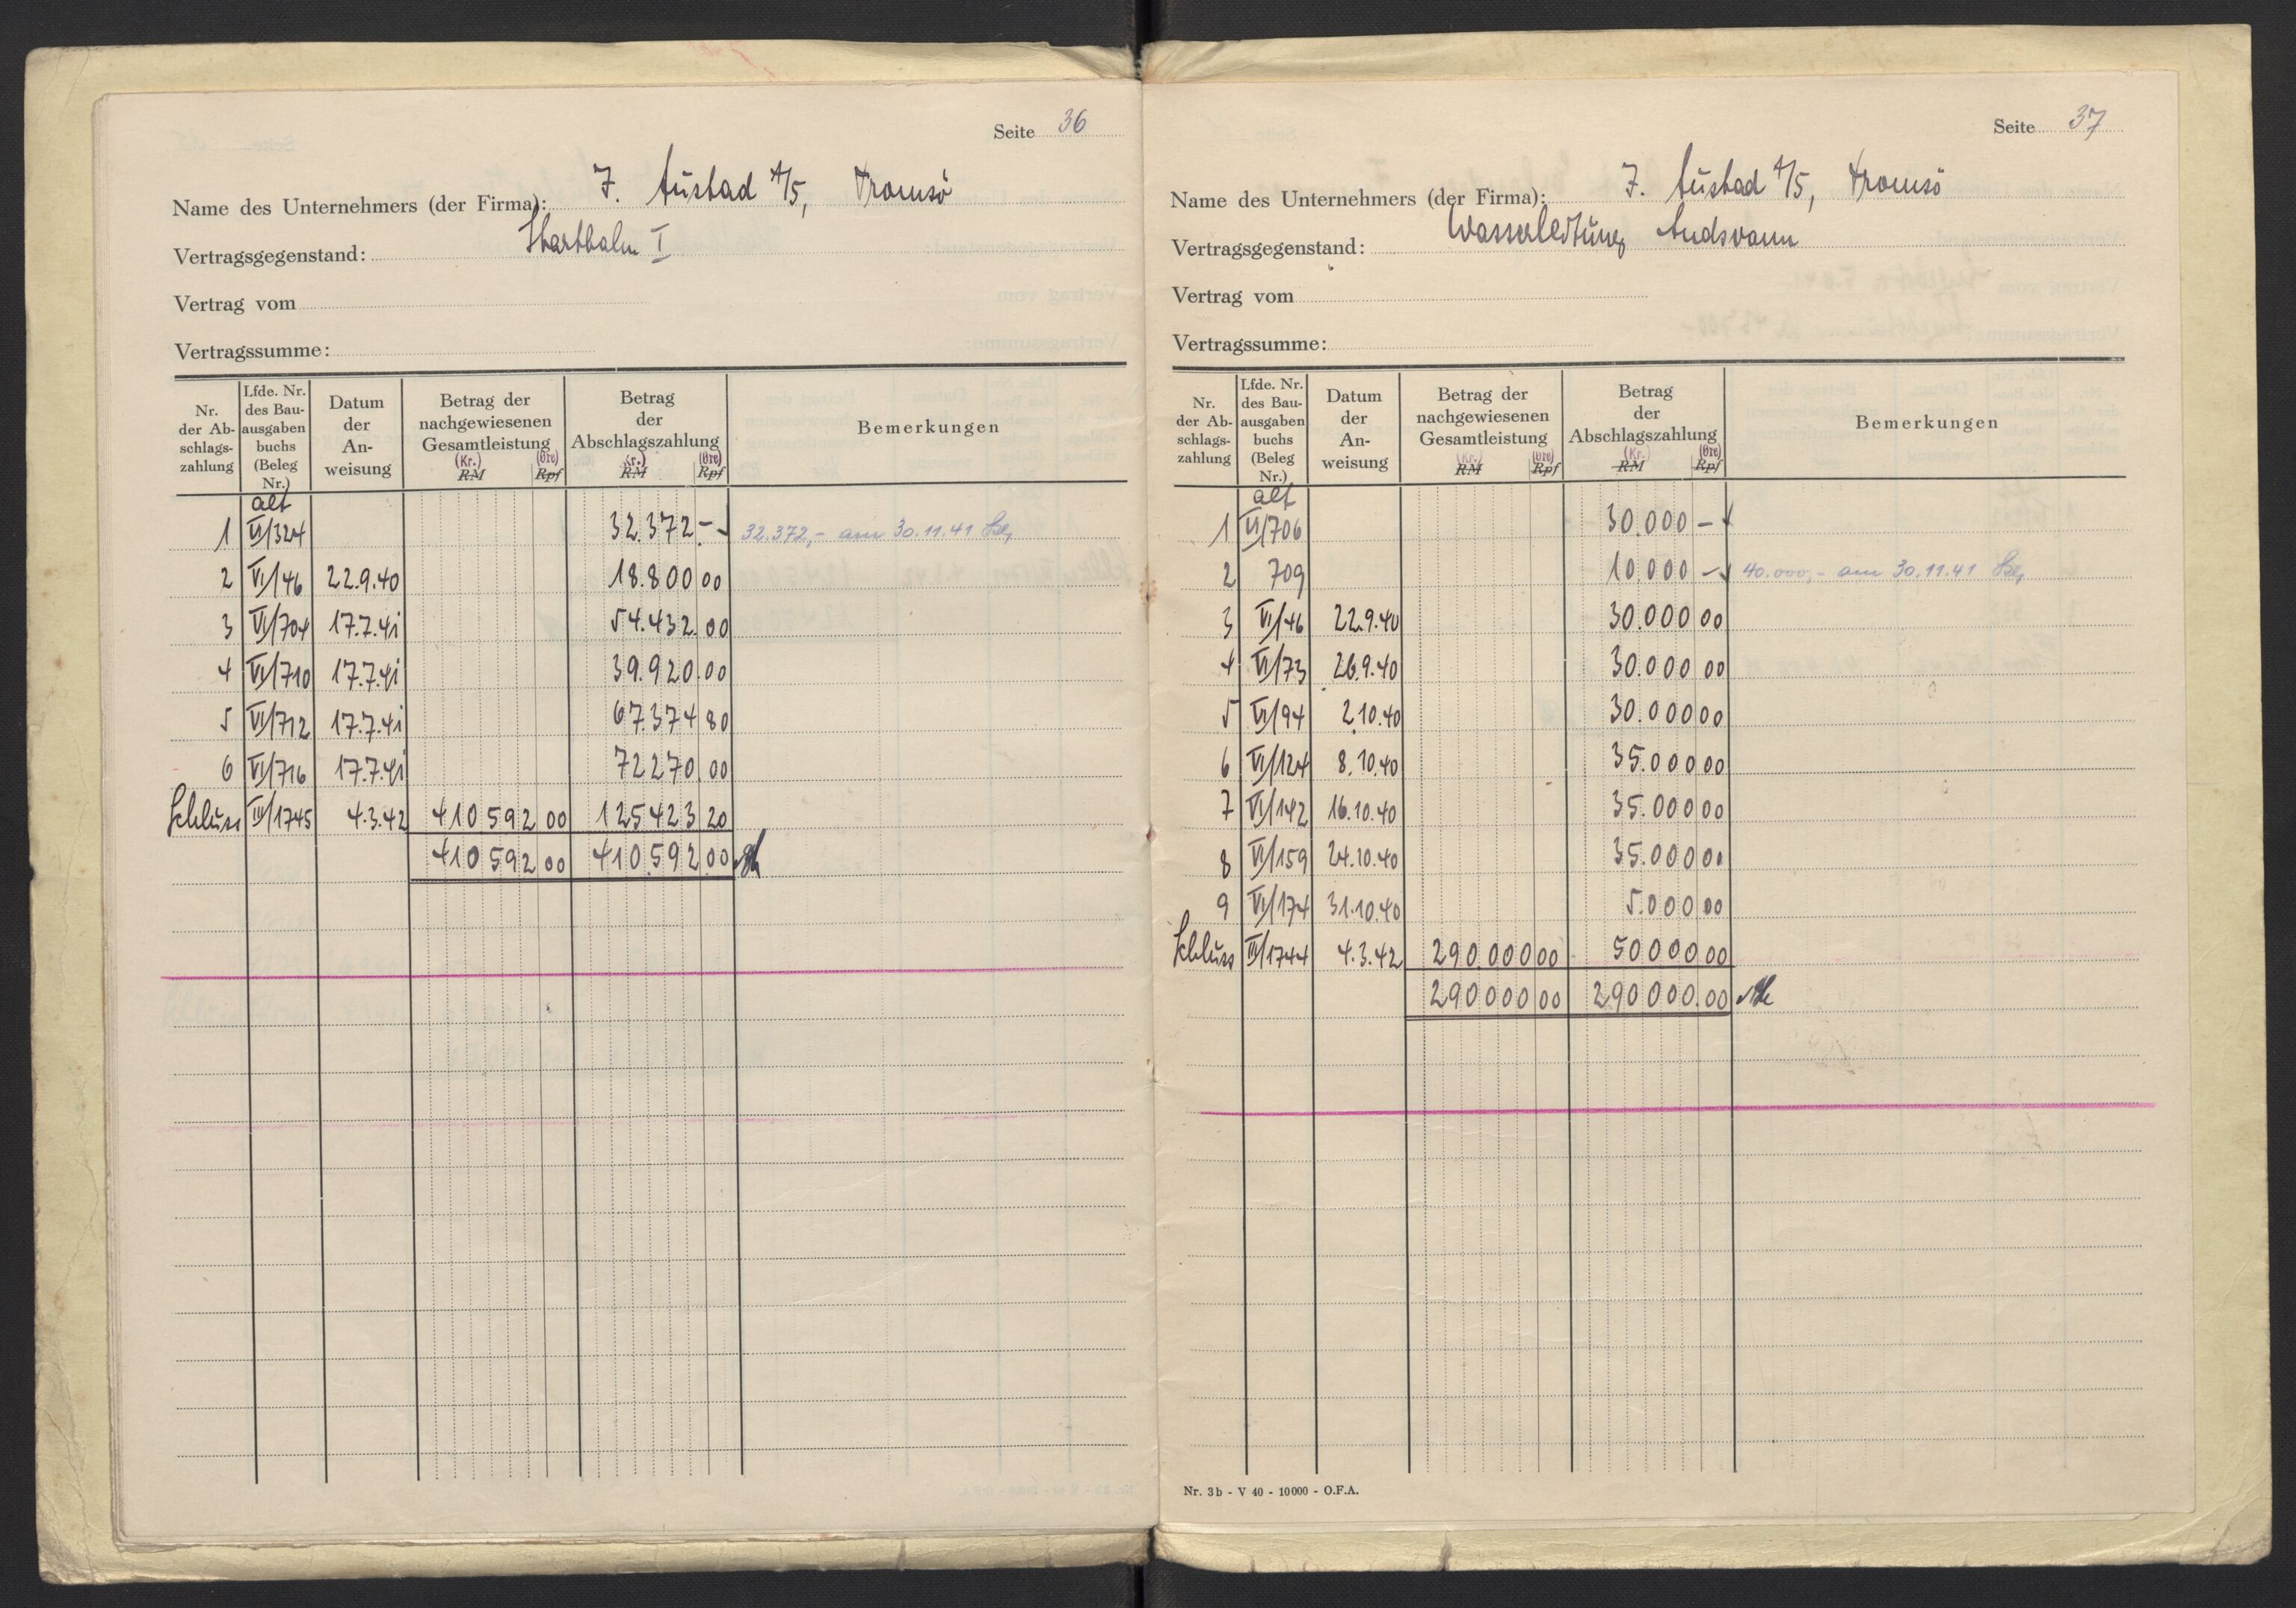 Seite 36
Name des Unternehmers (der Firma): J. Austad A/S, Tromsö
Vertragsgegenstand: Startbahn I
Vertrag vom
Vertragssumme:
Nr. der Abschlagszahlung | Lfde. Nr. des Bauausgabenbuchs (Beleg Nr.) | Datum der Anweisung | Betrag der nachgewiesenen Gesamtleistung (Kr.) RM (Öre) Rpf | Betrag der Abschlagszahlung (Kr.) RM (Öre) Rpf | Bemerkungen
alt
1 VI/324 32.372.- 32.372,- am 30.11.41
2 VI/46 22.9.40 18.800 00
3 VI/704 17.7.41 54.432.00
4 VI/710 17.7.41 39.920.00
5 VI/712 17.7.41 67.374 80
6 VI/716 17.7.41 72270 00
Schluss III/1745 4.3.42 410592 00 125423 20
410592 00 410.592.00
Seite 37
Name des Unternehmers (der Firma): J. Austad A/S, Tromsö
Vertragsgegenstand: Wasserleitung Andsvann
Vertrag vom
Vertragssumme:
Nr. der Abschlagszahlung | Lfde. Nr. des Bauausgabenbuchs (Beleg Nr.) | Datum der Anweisung | Betrag der nachgewiesenen Gesamtleistung (Kr.) RM (Öre) Rpf | Betrag der Abschlagszahlung (Kr.) RM (Öre) Rpf | Bemerkungen
alt
1 VI/706 30.000 -
2 709 10.000 - 40.000,- am 30.11.41
3 VI/46 22.9.40 30.000 00
4 VI/73 26.9.40 30.000 00
5 VI/94 2.10.40 30.000 00
6 VI/124 8.10.40 35.000 00
7 VI/142 16.10.40 35.000 00
8 VI/159 24.10.40 35.000 00
9 VI/174 31.10.40 5.000 00
Schluss III/1744 4.3.42 290.000 00 50000 00
290000 00 290000.00
Nr. 3b - V 40 - 10000 - O.F.A.